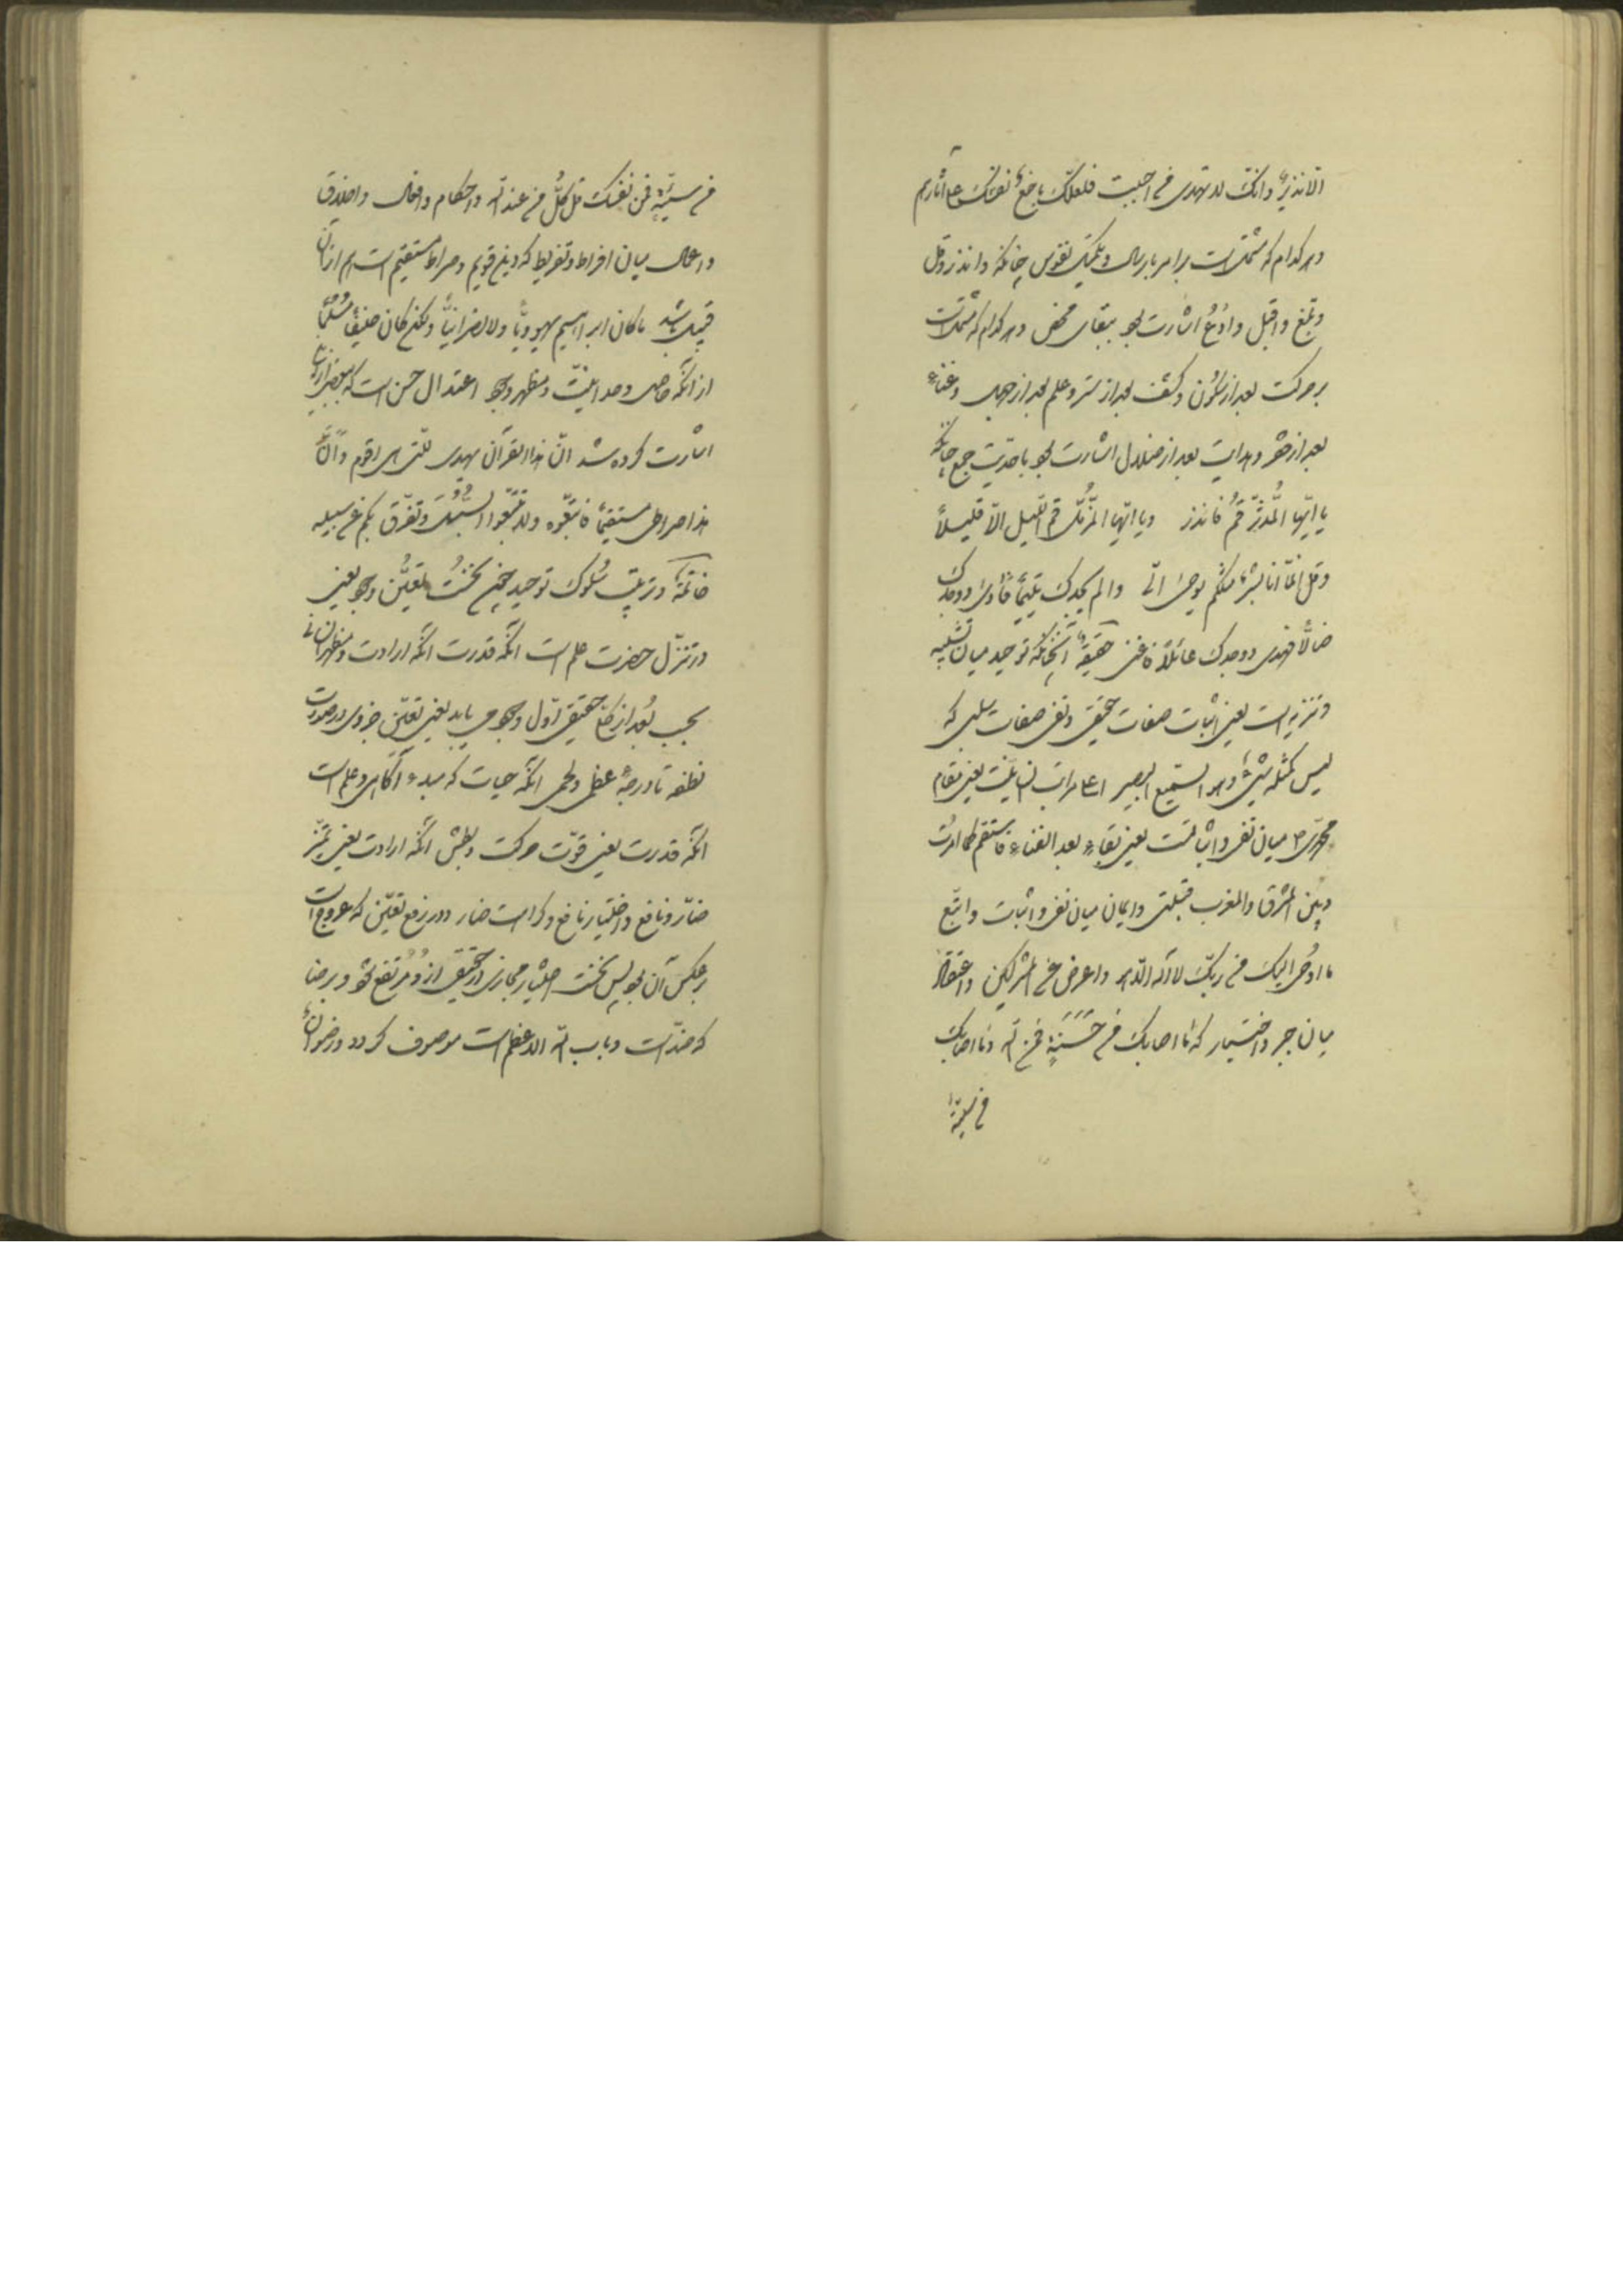 الا نذیر وانک لا تهدی من احببت فلعلک باخع نفسک علی آثارهم
و هر کدام که مشتملست بر امر بارسال و تکمیل نفوس چنانکه وانذر وقل
وبلغ واقبل وادع اشارت بود ببقای محض و هر کدام که مشتملست
بر حرکت بعد از سکون و کشف بعد از ستر و علم بعد از جهل و غناء
بعد از فقر و هدایت بعد از ضلال اشارت بود باحدیت جمع چنانکه
یا ایها المدثر قم فانذر ویا ایها المزمل قم اللیل الا قلیلاً
وقل انما انا بشر مثلکم یوحی الی والم یجدک یتیماً فآوی ووجدک
ضالاً فهدی ووجدک عائلاً فاغنی حقیقة آنچنانکه توحید میان تشبیه
و تنزیه است یعنی اثبات صفات حقیقی و نفی صفات سلبی که
لیس کمثله شیء وهو السمیع البصیر اعلی مراتب انسانیت یعنی مقام
محمدی ص میان نفی و اثباتست یعنی بقاء بعد الفناء فاستقم کما امرت
وبین المشرق والمغرب قبلتی و ایمان میان نفی و اثبات واتبع
ما اوحی الیک من ربک لا اله الا هو واعرض عن المشرکین و اعتقاد
میان جبر و اختیار که ما اصابک من حسنة فمن الله وما اصابک
من سیئة
من سیئة فمن نفسک قل کل من عند الله و احکام و افعال و اخلاق
و اعمال میان افراط و تفریط که دین قویم و صراط مستقیم است هم ازان
قبیل باشد ما کان ابراهیم یهودیاً ولا نصرانیاً ولکن کان حنیفاً مسلماً
از آنکه خاص وحدانیت و مظهر وجود اعتدال حسن است که بعضی ازان
اشارت کرده شد ان هذا القرآن یهدی للتی هی اقوم وان
هذا صراطی مستقیماً فاتبعوه ولا تتبعوا السبل وتفرق بکم عن سبیله
خاتمة در ترتیب سلوک توحید چنین نخست تعین وجود یعنی
در تنزل حضرت علم است آنگه قدرت آنگه ارادت و مظهر انسانی
بحسب بعد از حقیقی اول وجود می یابد یعنی تعین جزوی در صورت
نطفه تا درجة عظمی ولحمی آنگه حیات که مبدء آگاهی و علم است
آنگه قدرت یعنی قوت حرکت و بطش آنگه ارادت یعنی تمیز
ضار و نافع و اختیار نافع و کراهت ضار و در رفع تعین که عروج است
برعکس آن بود پس نخست اختیار مجازی در حقیقی ازو مرتفع شود و برضا
که ضد است و باب الله الاعظم است موصوف گردد و رضوان